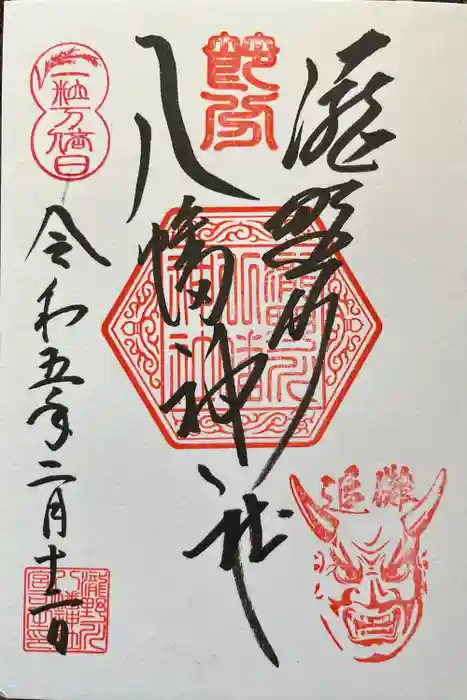 節分
瀧野川
八幡神社
一粒万倍日
令和五年二月十二日
追儺
瀧野川八幡神社